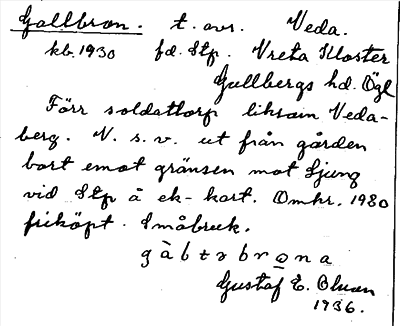 Gallbron. t. avs. Veda.
kb. 1930 fd. Stp. Vreta Kloster
Gullbergs hd. Ögl
Förr soldattorp liksom Veda-
berg. N. s. v. ut från gården
bort emot gränsen mot Ljung
vid Stp å ek-kart. Omkr. 1980
friköpt. Småbruk.
Gustaf E. Olson
1936.